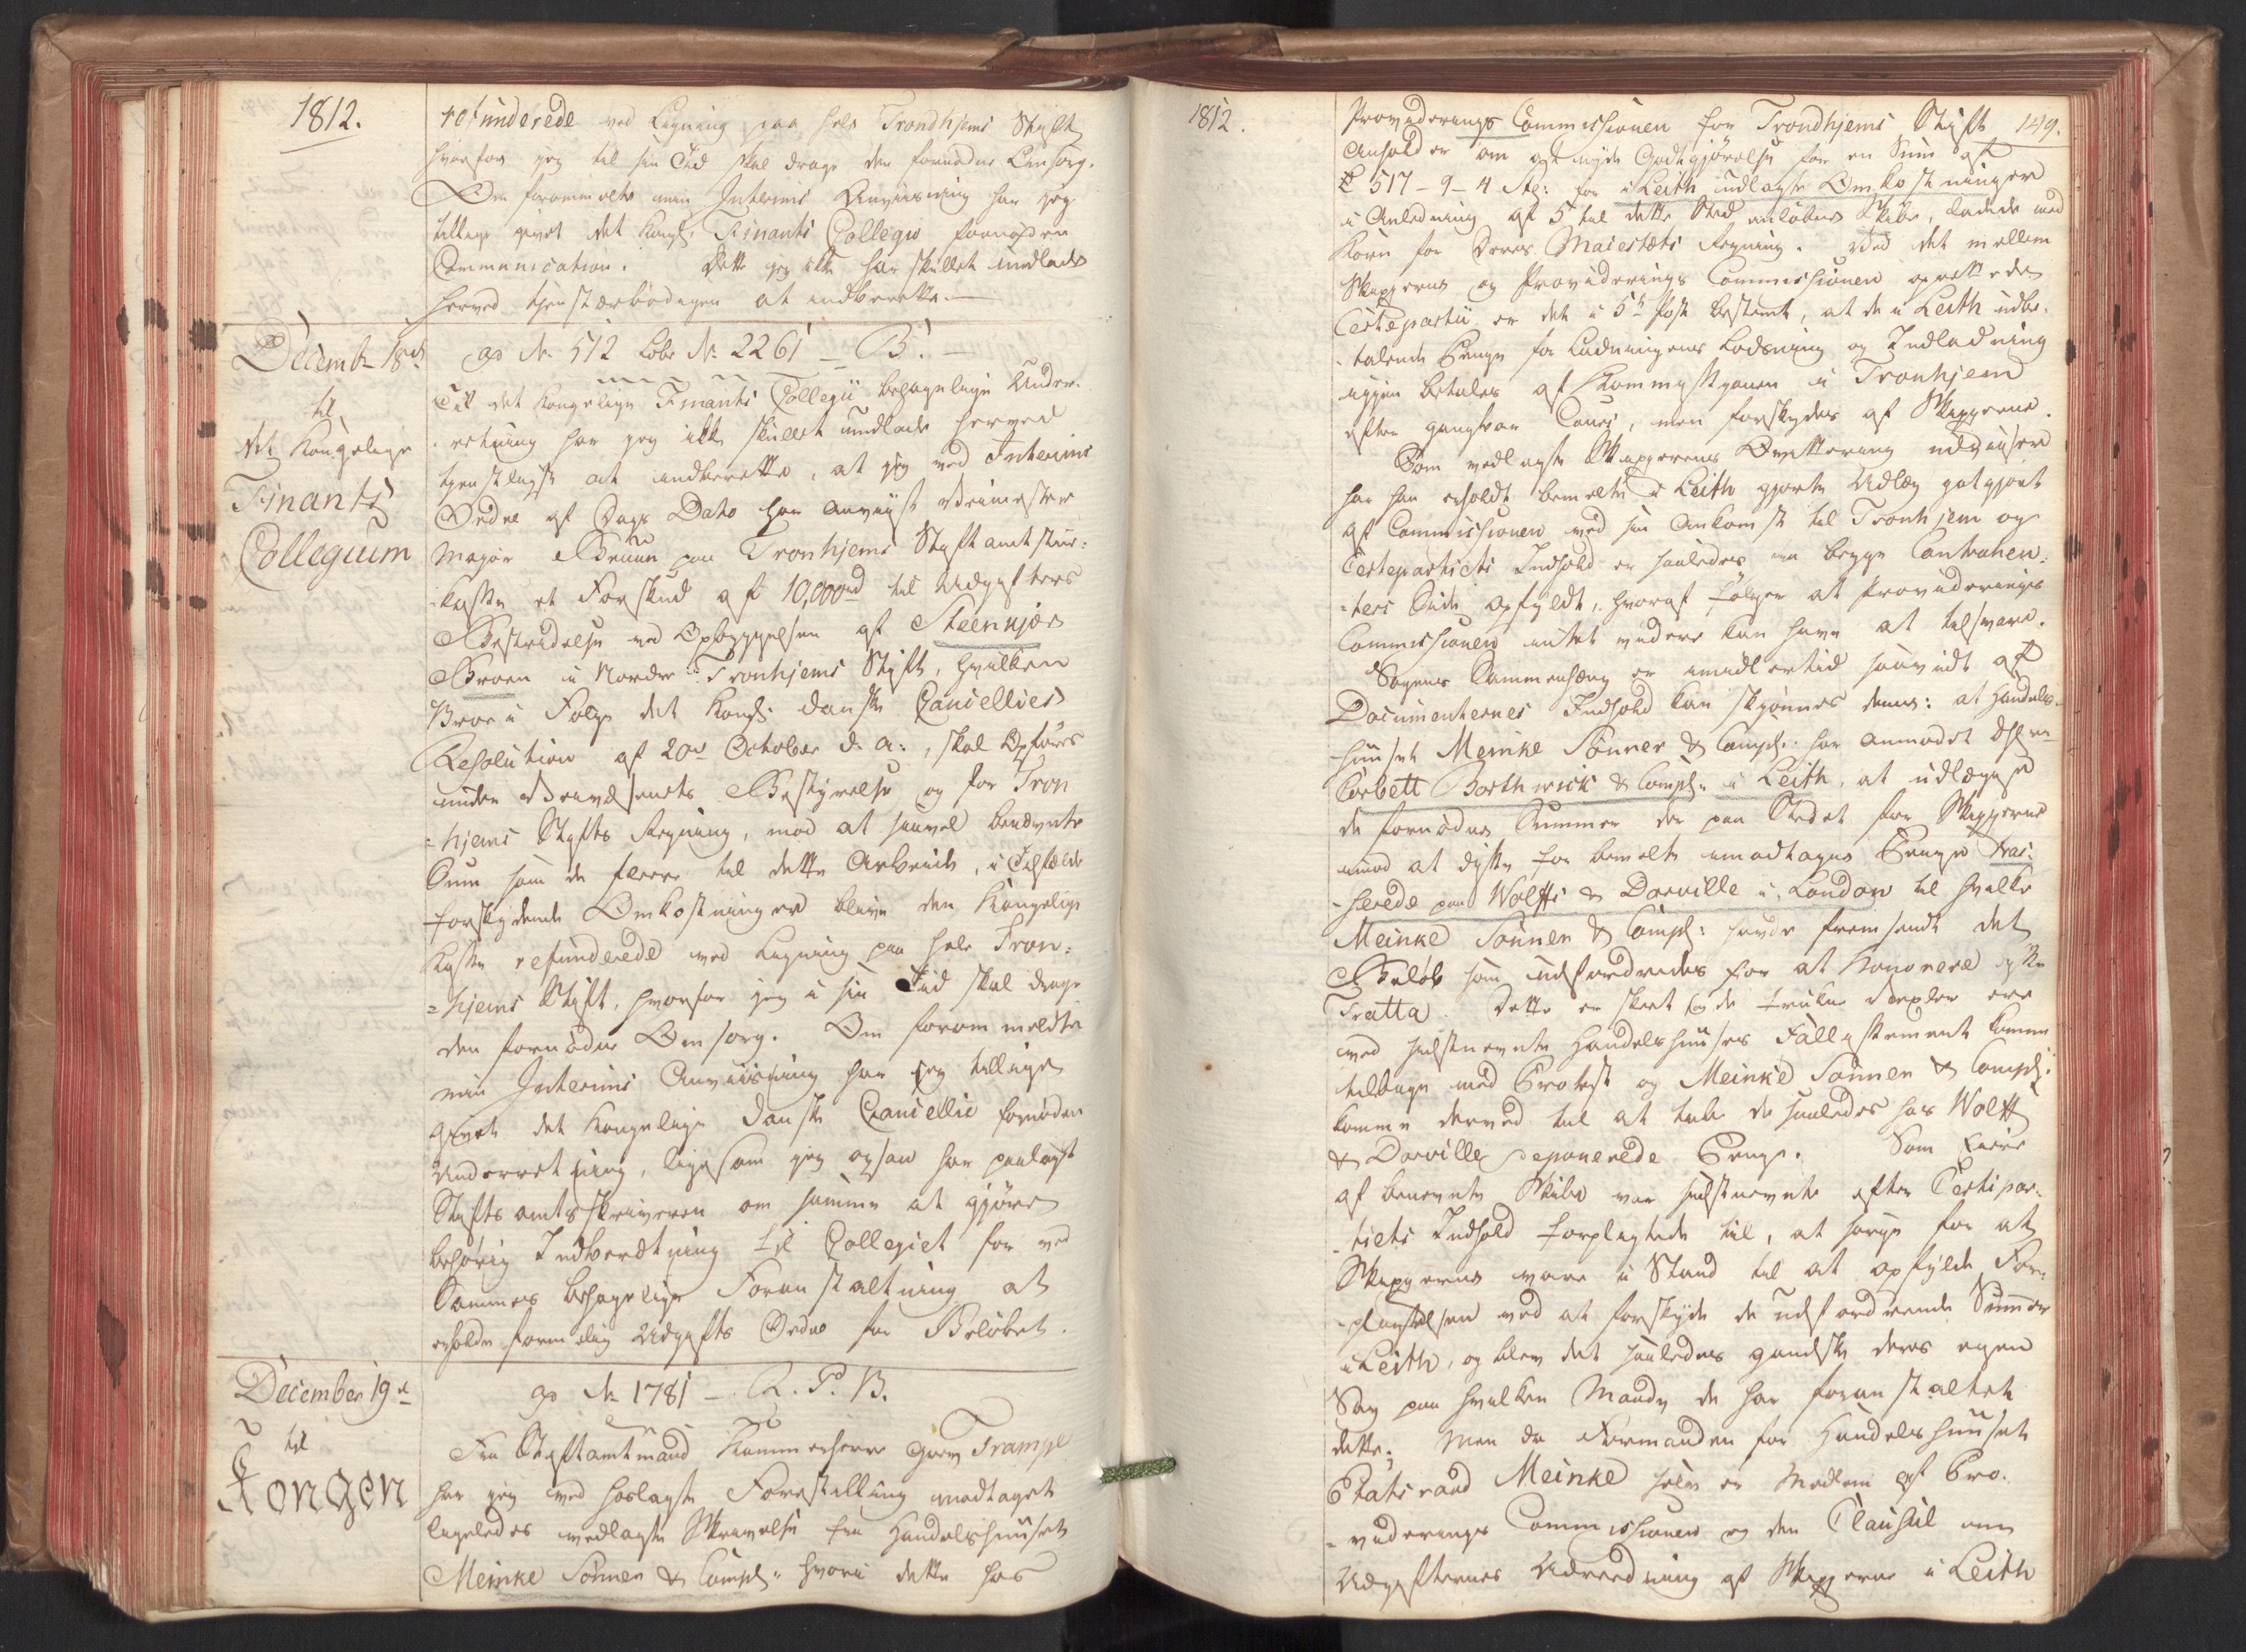 1812.
refunderede ved Ligning paa hele Trondhjems Stift
hvorfor jeg til sin Tid skal drage den fornødne Omsorg.
Om forommeldte min Interims Anviisning har jeg
tillige givet det Kongl: Finants Collegio fornøden
Communication. Dette jeg ikke har skullet undlade
herved tjenstærbødigen at indberette.
Decemb 18d
ap No 512 Lobe No 2261 _ B.
til
det Kongelige
Finants
Collegium
Til det Kongelige Finants Collegii behagelige Under-
retning har jeg ikke skullet undlade herved
tjenstligst at indberette, at jeg ved Interims
Ordre af Dags Dato har anviist Veimester
Major Bruun paa Tronhjems Stiftamtstue-
kasse et Forskud af 10,000rd til Udgifters
Bestridelse ved Opbyggelsen af Steenkjær
Broen i Nordre Tronhjems Stift, hvilken
Broe i Følge det Kongl: danske Cancellies
Resolution af 20de October d. A:, skal opføres
under Veivæsenets Bestyrelse og for Tron
=hjems Stifts Regning, mod at saavel benævnte
Sum som de fleere til dette Arbeide, i Tilfælde
forskydende Omkostninger blive den Kongelige
Kasse refunderede ved Ligning paa hele Tron-
=hjems Stift, hvorfor jeg i sin Tid skal drage
den fornødne Omsorg. Om forommeldte
min Interims Anviisning har jeg tillige
givet det Kongelige danske Cancellie fornøden
Underretning, ligesom jeg ogsaa har paalagt
Stiftsamtsskriveren om samme at gjøre
behørig Indberetning til Collegiet for ved
Sammes behagelige Foranstaltning at
erholde formelig Udgifts Ordre for Beløbet.
December 19d
ap No 1781 - R. P. B.
til
Kongen
Fra Stiftamtmand Kammerherre Grev Trampe
har jeg ved hoslagte Forestilling modtaget
ligeledes vedlagte Skrivelse fra Handelshuuset
Meinke Sønner & Compl: hvori dette hos
1812.
149.
Provideerings Commissionen for Trondhjems Stift
Anholder om at nyde Godtgjørelse for en Sum af
£ 517-9-4 Ste: for i Leith udlagte Omkostninger
i Anledning af 5 til dette Sted anløbne Skibe, ladede med
Korn for Deres Maiestæts Regning. Ved det mellem
Skipperne og Provideerings Commissionen oprettede
Certepartie er det i 5te Post bestemt, at de i Leith udbe-
-talende Penge for Ladningens Lodsning og Indladning
igjen betales af Kommissionen i Tronhjem
efter gangbar Cours, men forskydes af Skipperne.
Som vedlagte Skipperens Qvittering udviiser
har han erholdt bemelte i Leith gjorte Udlæg godtgjort
af Commissionen ved sin Ankomst til Tronhjem og
Certepartiets Indhold er saaledes paa begge Contrahen-
=ters Side opfyldt, hvoraf følger at Provideerings
Commissionen intet videre kan have at tilsvare.
Sagens Sammenhæng er imidlertid saavidt af
Documenternes Indhold kan skjønnes denne: at Handels-
huuset Meinke Sønner & Compl: har anmodet DHrr
Corbett Borthwick & Compl: i Leith, at udlægge
de fornødne Summer der paa Stedet for Skipperne
imod at disse for bemelte modtagne Penge tras-
-serede paa Wolffs & Dorville i London til hvilke
Meinke Sønner & Compl: havde fremsendt det
Beløb som udfordredes for at honorere disse
Tratta. Dette er skeet og de trukne Vexler ere
ved sidstnevnte Handelshuuses Fallissement komne
tilbage med Protest og Meinke Sønner & Compl:
komme derved til at tabe de saaledes hos Wolff
& Dorville deponerede Penge. Som Eiere
af benevnte Skibe var sidstnevnte efter Certepar-
-tiets Indhold forpligtede til, at sørge for at
Skipperne vare i Stand til at opfylde For-
-pligtelsen ved at forskyde de udfordrende Summer
i Leith, og blev det saaledes gandske deres egen
Sag paa hvilken Maade de har foranstaltet
dette; Men da Formanden for Handelshuuset
Etatsraad Meinke selv er Medlem af Pro-
-videerings Commissionen og den Clausul om
Udgifternes Udreedning af Skipperne i Leith